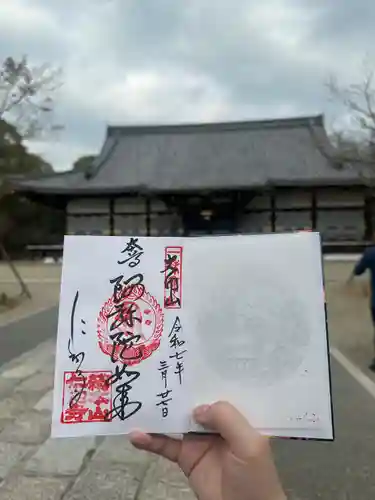 奉
大内山
阿弥陀如来
令和七年
三月廿七日
総本山
仁和寺